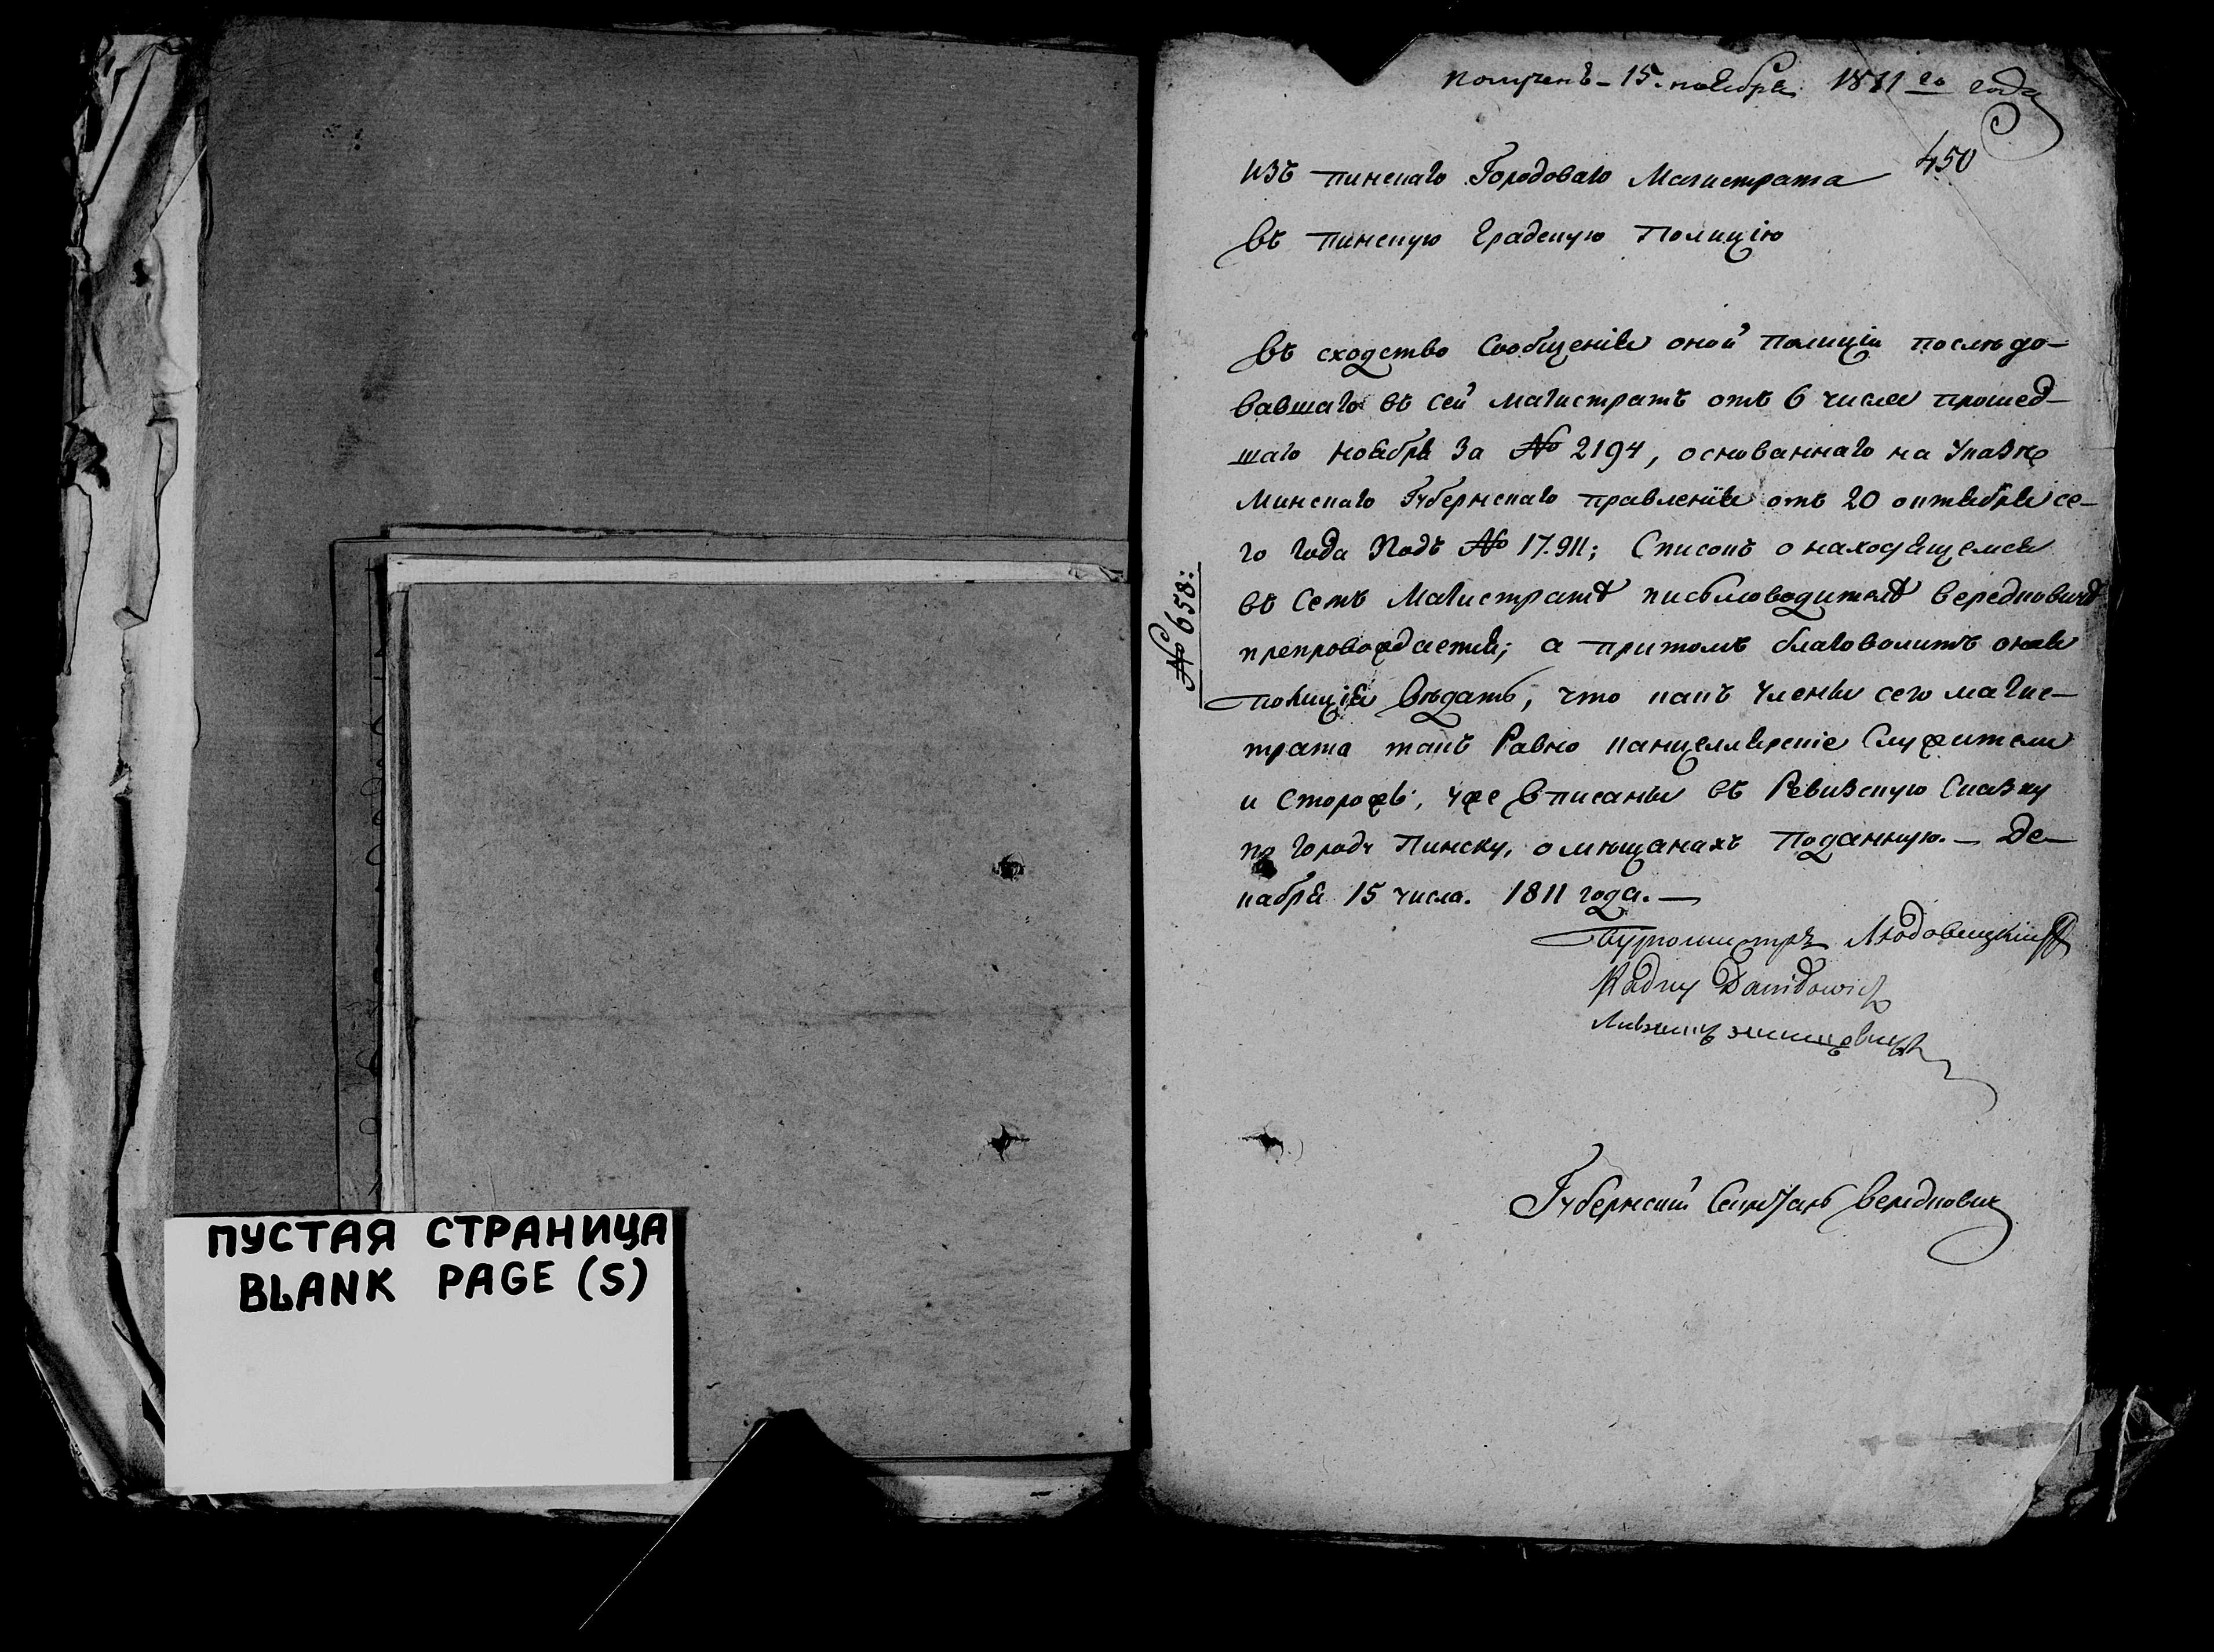 ПУСТАЯ СТРАНИЦА
BLANK PAGE (S)
полученъ - 15. ноября 1811 го года
450
Изъ пинскаго Городоваго Магистрата
въ пинскую Градскую Полицію
№ 658:
Въ сходство Сообщенія оной Полиціи послѣдо-
вавшаго въ сей Магистратъ отъ 6 числа прошед-
шаго ноября за № 2194, основаннаго на Указѣ
Минскаго Губернскаго правленія отъ 20 октября се-
го года Подъ № 17.911; Списокъ о находящемся
въ Семъ Магистратѣ письмоводителѣ Вередковичѣ
препровождается; а притомъ благоволитъ оная
полиція вѣдать, что какъ члены сего магис-
трата такъ Равно канцелярскіе Служители
и Сторожъ, уже вписаны въ Ревизскую Сказку
по Городу Пинску, о мѣщанахъ Поданную. - Де-
кабря 15 числа. 1811 года. -
Бургомистръ
Radny Danidowicz
Губернскій Секретарь Вередкович